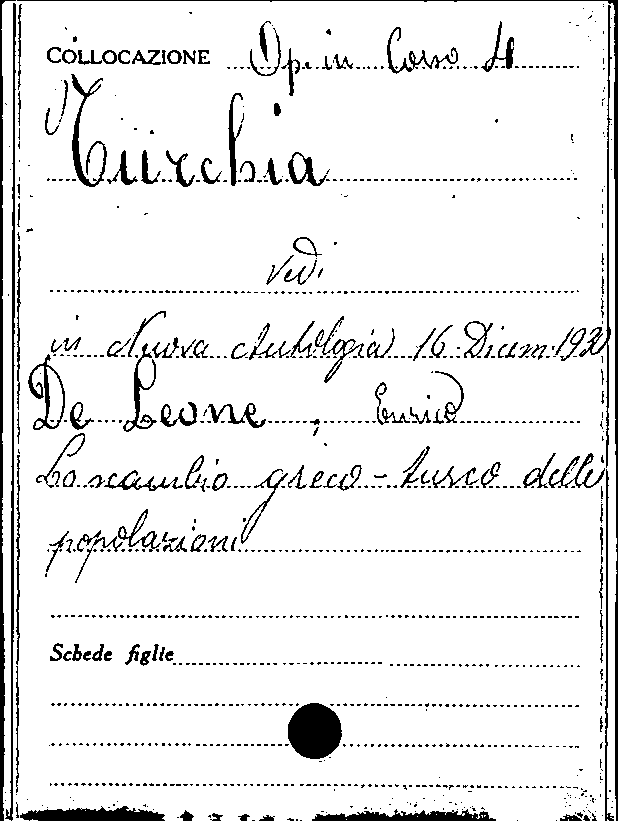 COLLOCAZIONE Op. in Corso 41
Turchia
Vedi
in Nuova Antologia 16 Dicem. 1930
De Leone, Enrico
Lo scambio greco-turco delle
popolazioni
Schede figlie